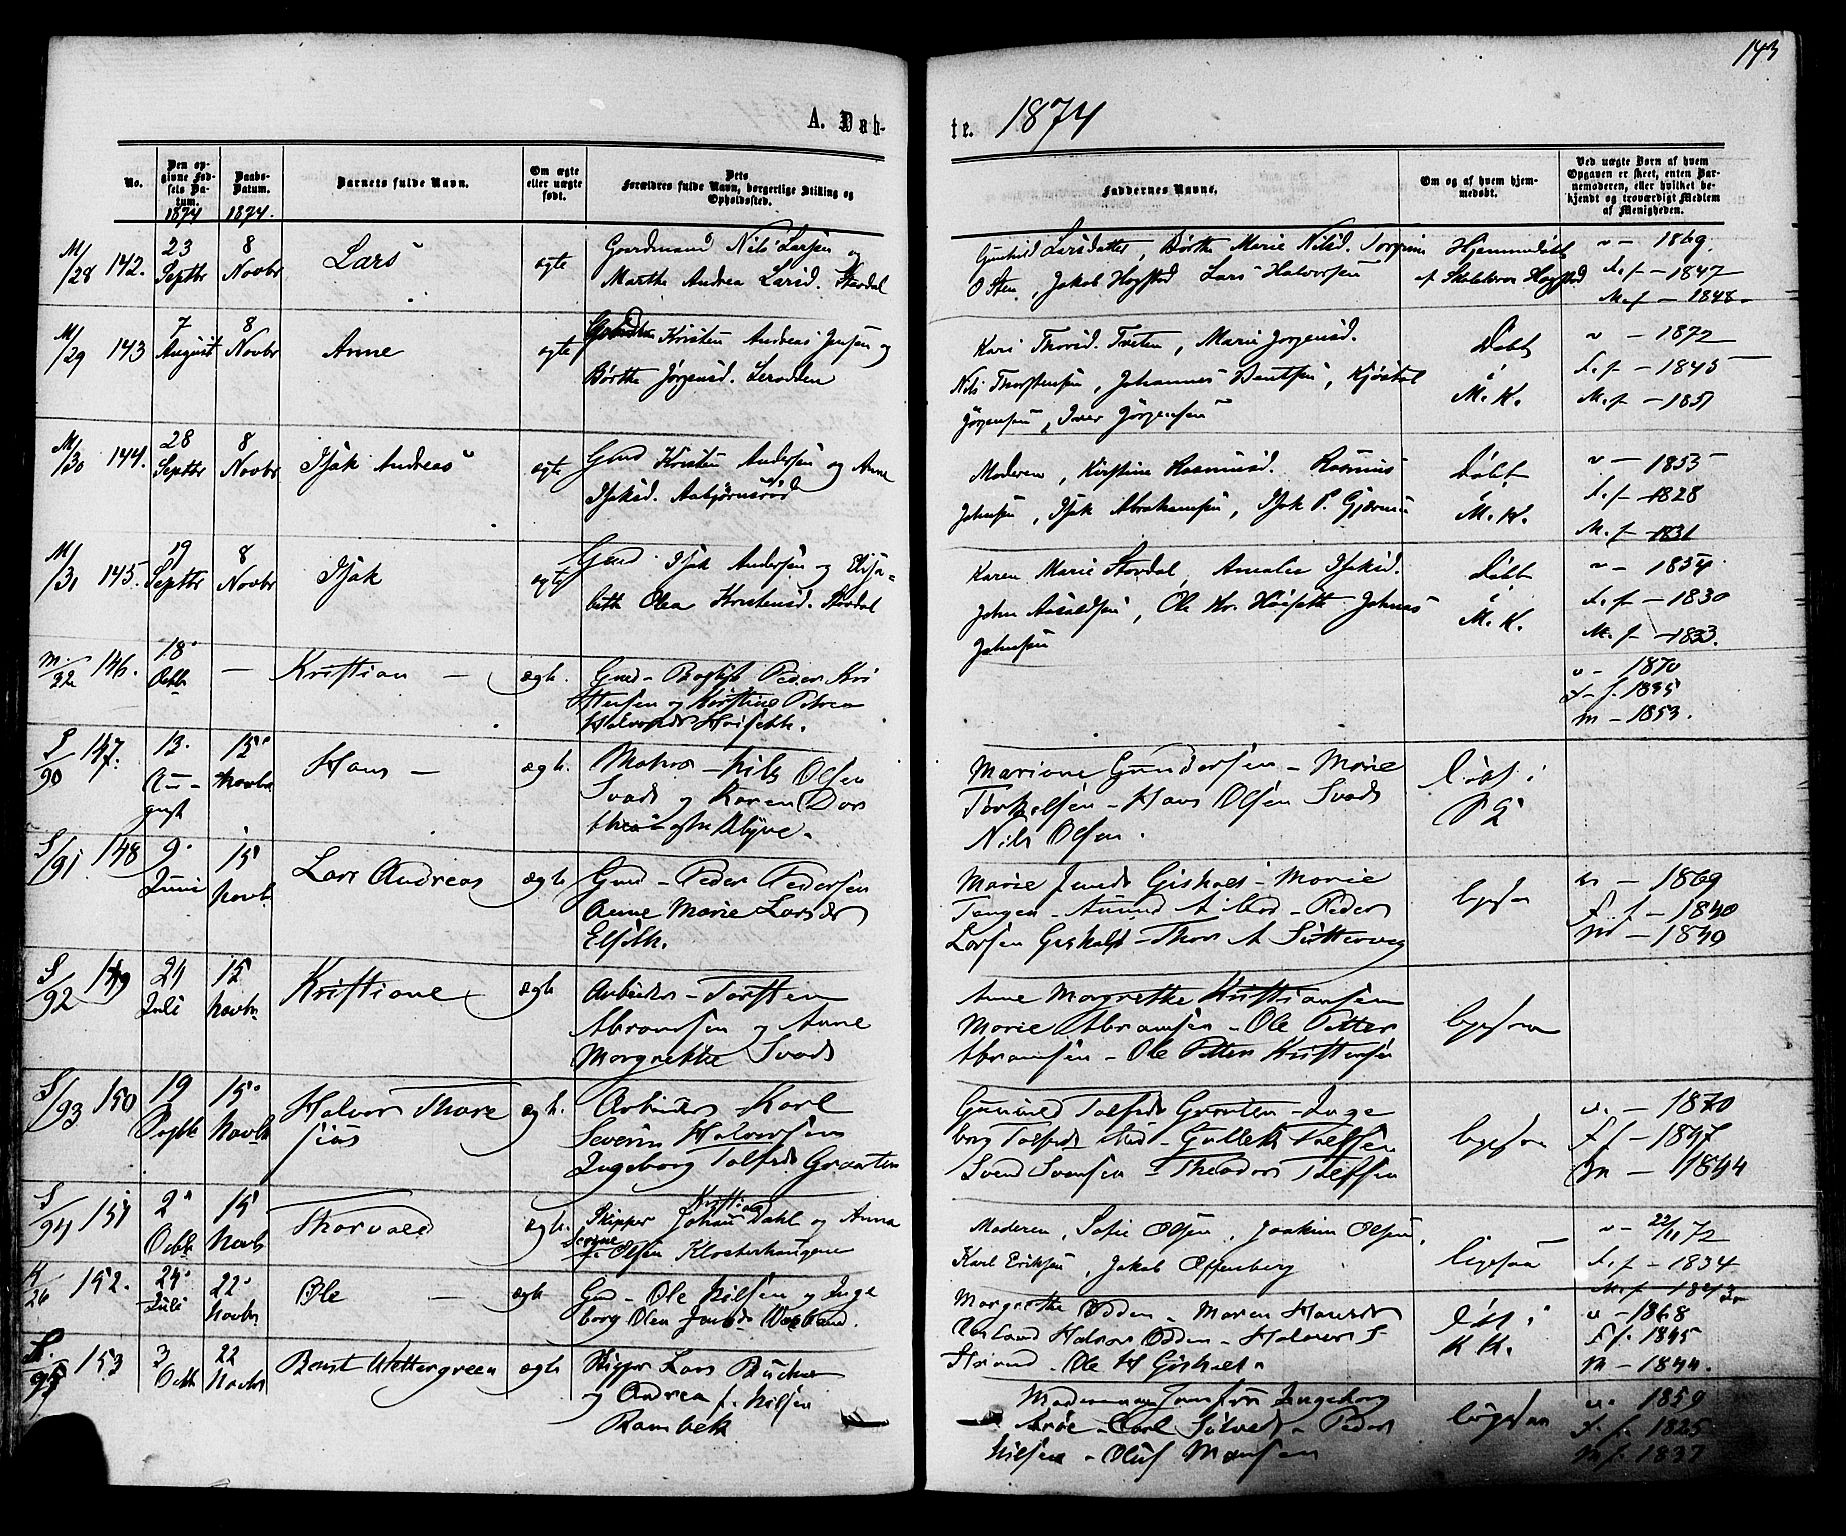 143
A. Døb-
te. 1874
No.
Den opgivne Fødsels Datum. 1874
Daabs-Datum. 1874.
Barnets fulde Navn.
Om ægte eller uægte født.
Dets Forældres fulde Navn, borgerlige Stilling og Opholdssted.
Faddernes Navne.
Om og af hvem hjemmedøbt.
Ved uægte Børn af hvem Opgaven er skeet, enten Barnemoderen, eller hvilket bekjendt og troværdigt Medlem af Menigheden.
M/28 142. 23 Septbr 8 Novbr Lars ægte Gaardmand Nils Larsen og
Marthe Andrea Larsd. Stavdal
Gunhild Larsdatter, Børthe Marie Nilsd. Torgrim
O Sten, Jakob Hogstad Lars Halvorsen
Hjemmedøbt
af Skolelærer Hogstad
v - 1869.
F. f - 1847
M. f - 1848
M/29 143 7 August 8 Novbr Anne ægte Kristen Andreas Jensen og
Børthe Jørgensd.
Kari Thorsd. Tveten, Marie Jørgensd.
Nils Thorstensen, Johannes Bentsen, Kjøstol
Jørgensen, Iver Jørgensen
Døbt
M. K.
v - 1872
F. f - 1845
M. f - 1851
M/30 144. 28 Septbr 8 Novbr Isak Andreas ægte Gmd Kristen Andersen og Anne
Isaksd. Aabjørnsrød
Moderen, Kirstine Rasmusd. Rasmus
Johnsen, Isak Abrahamsen, Isak P.
Døbt
M. K.
v - 1855
F. f - 1828
M. f - 1831
M/31 145. 19 Septbr 8 Novbr Isak ægte Gmd Isak Andersen og Elisa-
beth Olea Kristensd. Stavdal
Karen Marie Stavdal, Amalia Isaksd.
John Aasoldsen, Ole Kr. Høiseth Johnas
Johnsen
Døbt
M. K.
v - 1854.
F. f - 1830
M. f - 1833.
M./32 146. 18 Octb - Kristian - ægte. Gmd - Peder Kri
stensen og Kirstine Petrea
Halvorsdt Høiseth.
v - 1870
F. f. 1835
M - 1853.
S/90 147. 13. August 15 Novbr Hans - ægte. Matros - Nils Olsen
Svads og Karen Dor
thea
Mariane Gundersen - Marie
Torkelsen - Hans Olsen Svads
Nils Olsen.
Døbt i
S/91 148 9. Juni 15 Novb. Lars Andreas ægte Gmd - Peder Pedersen
Anne Marie Larsdt
Marie Jensdt Gisholt - Marie
Tangen - Peder
Larsen Gisholt - Thor A
ligesaa
v - 1869
F. f - 1840
M - 1840
S/92 149 24 Juli 15 Novbr Kristiane ægte Arbeider - Torsten
Abramsen og Anne
Margrethe Svads
Anne Margrethe Kristiansen
Marie Abramsen - Ole Petter
Abramsen - Ole Petter Kristensen
ligesaa
S/93 150 19 Septb 15 Novb Halvor Thore
sius
ægte. Arbeider - Karl
Severin Halvorsen
Ingeborg Tolfsdt Graaten
Gunnild Tolfsdt Graaten - Inge
borg Tolfsdt - Gullek Tolfsen
Svend Svensen - Theodor Tolfsen
ligesaa
v. - 1870
F. f - 1847
M - 1844
S/94 151 2 Octb 15 Novb Thorvald ægte. Skipper Johan Kristian Dahl og Anna
f. Olsen Klosterhaugene
Moderen, Sofie Olsen, Joakim Olsen,
Karl Eriksen, Jakob Offenberg
ligesaa
v - 22/11 72
F. f - 1834
M. f - 1843
K/26 152. 24 Juli 22 Novbr Ole - ægte Gmd - Ole Nilsen og Inge
borg Olea
Margrethe Odden - Maren
Halvor Odden - Halvor S
Strand - Ole H Gisholt
Døbt i
K K.
v - 1868
F. f. 1845
M - 1844.
S./95 153 3 Octb 22 Novbr Bernt Wettergreen ægte Skipper Lars
og Andrea f. Nilsen
Rambek
Ingeborg
Arøe - Carl - Peder
Nilsen - Oluf Monsen
ligesaa
v. - 1859
F. f. - 1825
M. f. - 1837